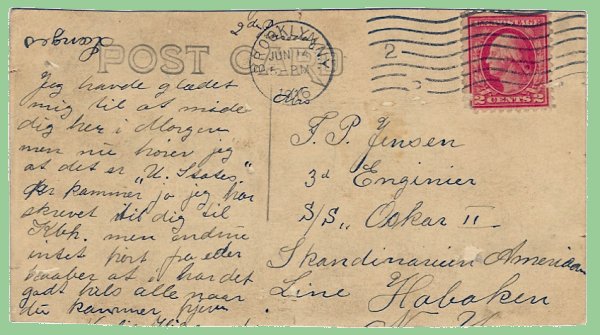 2 de
POST CARD
BROOKLYN, N.Y.
JUN 12
5 - PM
1916
2
U.S. POSTAGE
2 CENTS 2
Jeg havde glædet
mig til at møde
dig her i Morgen
men nu hører jeg
at det er "U. States."
der kommer jo jeg har
skrevet til dig til
Kbh. men endnu
intet hørt fra eller
haaber at du har det
godt hils alle naar
du kommer hjem
Mrs
F. P. Jensen
3d Enginier
S/S „Oskar II
Skandinavien American
Line Hoboken
N. Y.